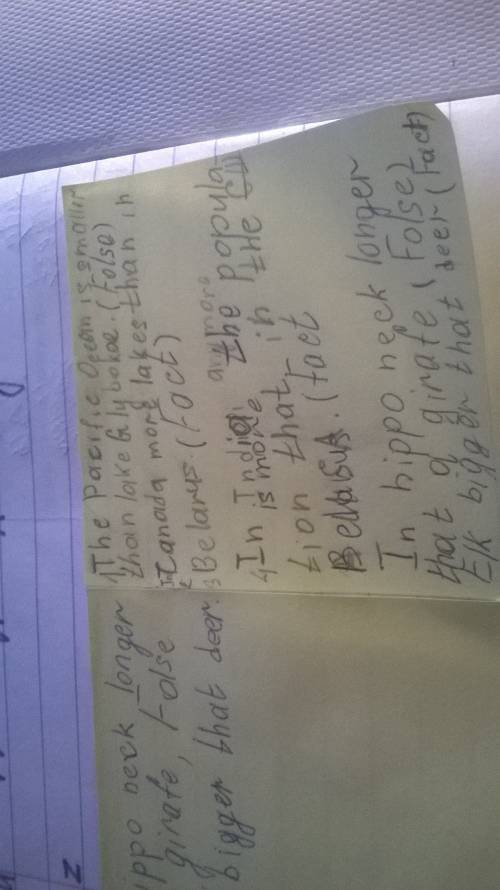 1 The Pacific Ocean is smaller
than lake Glybokoe. (Folse)
2 In Canada more lakes than in
3 Belarus. (Fact)
are more
4 In India the popula
is more
tion that in the
Belarus. (Fact
In hippo neck longer
that a girate (Folse)
Elk bigger that deer (Fact)
ippo neck longer
girate, Folse
bigger that deer.
z